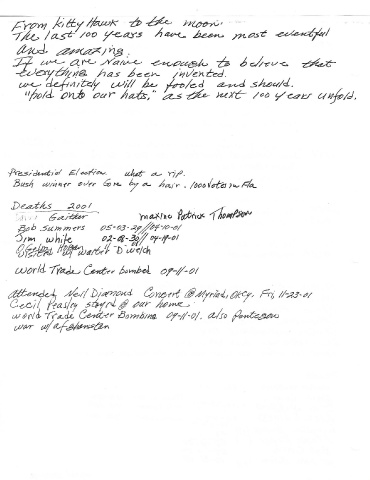 From Kitty Hawk to the moon.
The last 100 years have been most eventful
and amazing.
If we are Naive enough to believe that
everything has been invented.
we definitely will be fooled and should.
"hold onto our hats," as the next 100 years unfold.
Presidential Election what a rip.
Bush winner over Gore by a hair. 1000 votes in Fla
Deaths 2001
Gaither Maxine Patrick Thompson
Bob Summers 05-03-29//04-10-01
Jim White 02-08-30// 04-19-01
Visited w/ Walter D Welch
World Trade Center bombed 09-11-01
Attended Neil Diamond Concert @ Myriad, OKCy. Fri, 11-23-01
Cecil Peasley stayed @ our home
World Trade Center Bombing 09-11-01. also Pentagon
war w/ Afghanstan